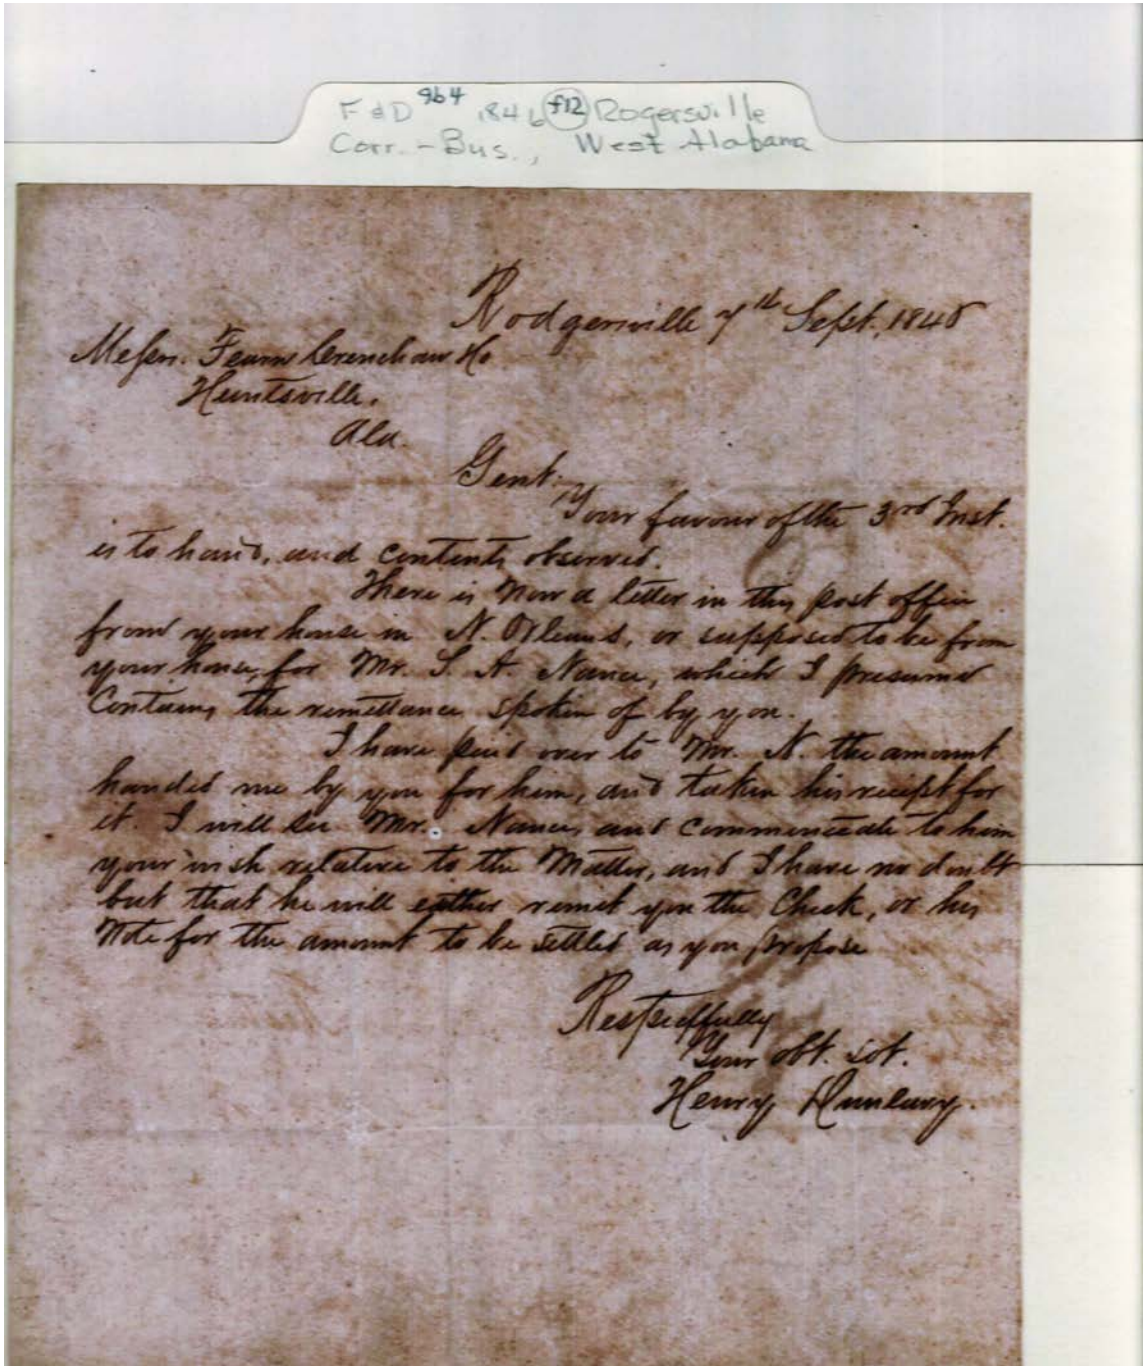 F & D 964 1846 f12 Rogersville
Corr. - Bus., West Alabama
Rodgersville 7th Sept. 1846
Messrs. Fearn Crenchaw & Co.
Huntsville.
Ala.
Gent;
Your favour of the 3rd Inst.
is to hand, and contents observed.
There is now a letter in this post office
from your house in N. Orleans, or supposed to be from
your house, for Mr. S. A. Nance, which I presume
Contains the remittance spoken of by you.
I have paid over to Mr. N. the amount
handed me by you for him, and taken his reciept for
it. I will see Mr. Nance, and communicate to him
your wish relative to the Matter, and I have no doubt
but that he will either remit you the Check, or his
Note for the amount to be settled as you propose
Respectfully
Your obt. svt.
Henry